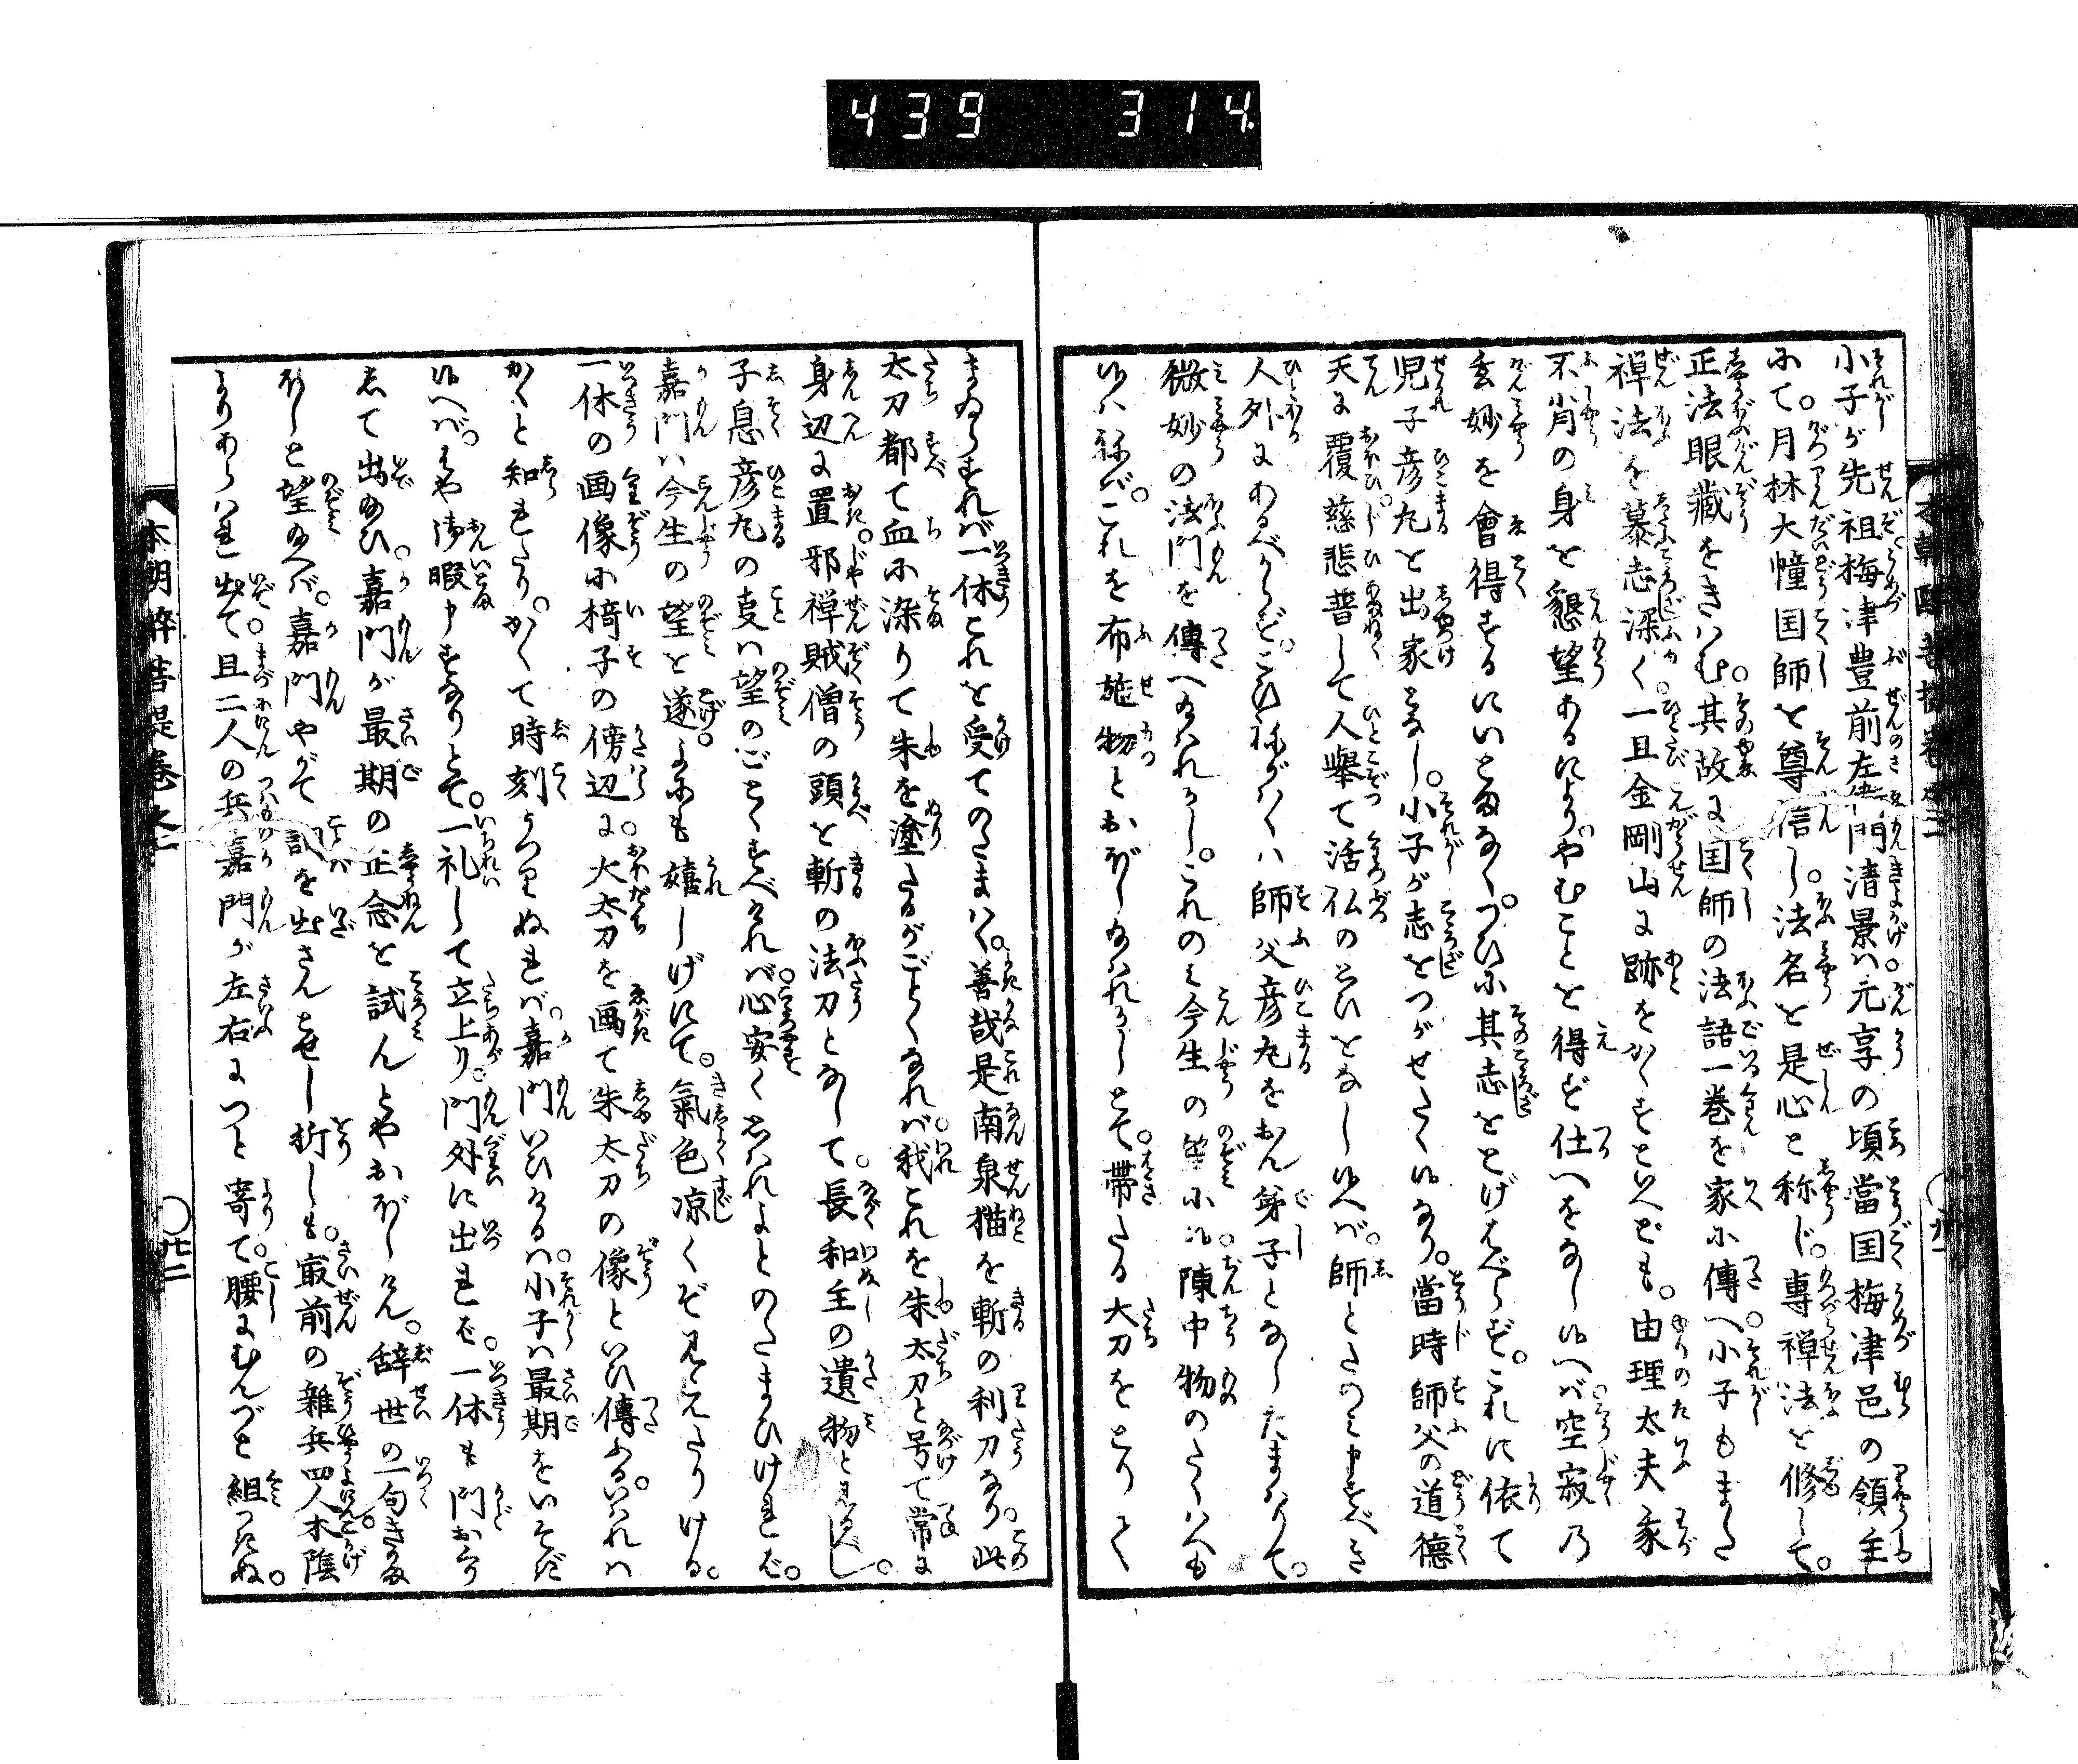 439 314.
小子が先祖梅津豊前左衛門清景は元享の頃當国梅津邑の領主
にて。月林大幢国師を尊信し。法名を是心と称じ。専禅法を修して。
正法眼蔵をきはむ。其故に国師の法語一巻を家に傳へ小子もまた
禅法を慕志深く一旦金剛山に跡をかくすといへども。由理太夫家
不肖の身を懇望あるにより。やむことを得ず仕へをなし候へば空寂乃
玄妙を會得するにいとまなく。つひに其志をとげはべらず。これに依て
児子彦丸を出家となし。小子が志をつがせたく候なり。當時師父の道徳
天に覆慈悲普して人挙て活仏のおもひをなし候へば。師とたのみ申すべき
人外にあるべからず。こひねがはくは師父彦丸をおん弟子となしたまはりて。
微妙の法門を傳へ給はれかし。これのみ今生の望に候陳中物のたくはへも
候はねば。これを布施物とおぼし給はれかしとて。帯たる大刀をとりて
まゐらすれば一休これを受てのたまはく。善哉是南泉猫を斬の利刀なり。此
太刀都て血に染りて朱を塗たるがごとくなれば。我これを朱太刀と号て常に
身辺に置。邪禅賊僧の頭を斬の法刀となして。長和主の遺物と見るべし。
子息彦丸の事は望のごとくすべければ。心安くおもはれよとのたまひければ。
嘉門は今生の望を遂。よにも嬉しげにて。氣色凉くぞ見えたりける。
一休の画像に椅子の傍辺に。大太刀を画て朱太刀の像といひ傳ふるいはれは
かくと知れたり。かくて時刻うつりぬれば。嘉門いひけるは。小子は最期をいそぎ
候へば。はや御暇申すなりとて。一礼して立上り。門外に出れば。一休も門おくり
して出給ひ。嘉門が最期の正念を試んとやおぼしけん。辞世の一句きかま
ほしと望給へば。嘉門やがて詞を出さんとせし折しも。最前の雑兵四人木陰
よりあらはれ出て。且二人の兵嘉門が左右につと寄て。腰にむんづと組つきぬ。
本朝酔菩提巻之二
〇廿二